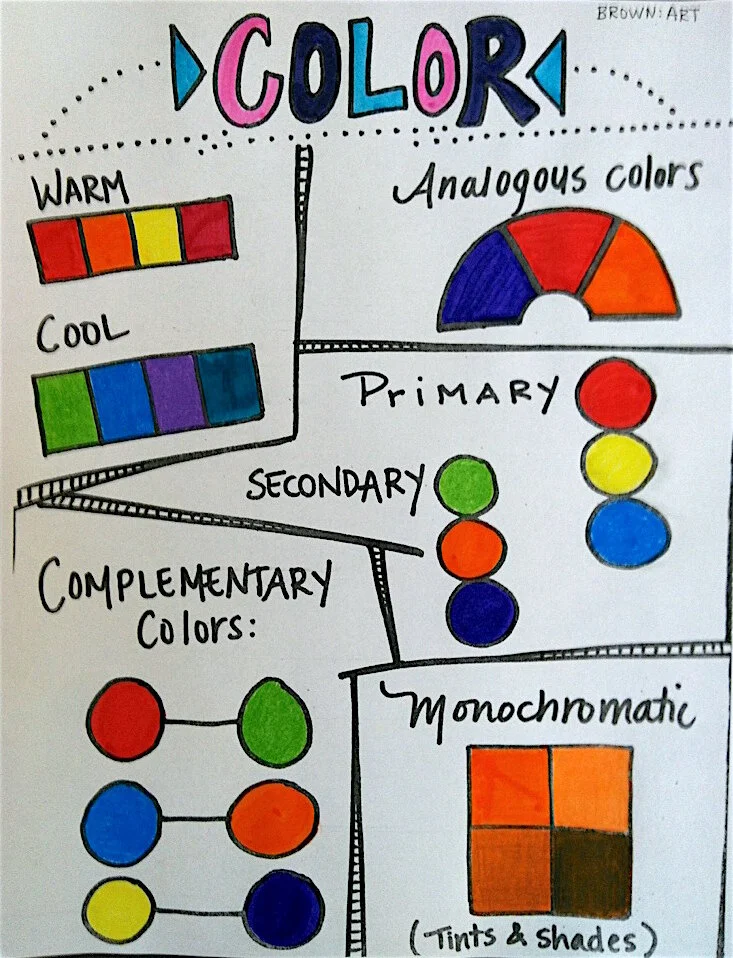 BROWN:ART
COLOR
WARM
Analogous colors
COOL
PriMARY
SECONDARY
COMPLEMENTARY
Colors:
Monochromatic
(Tints & Shades)